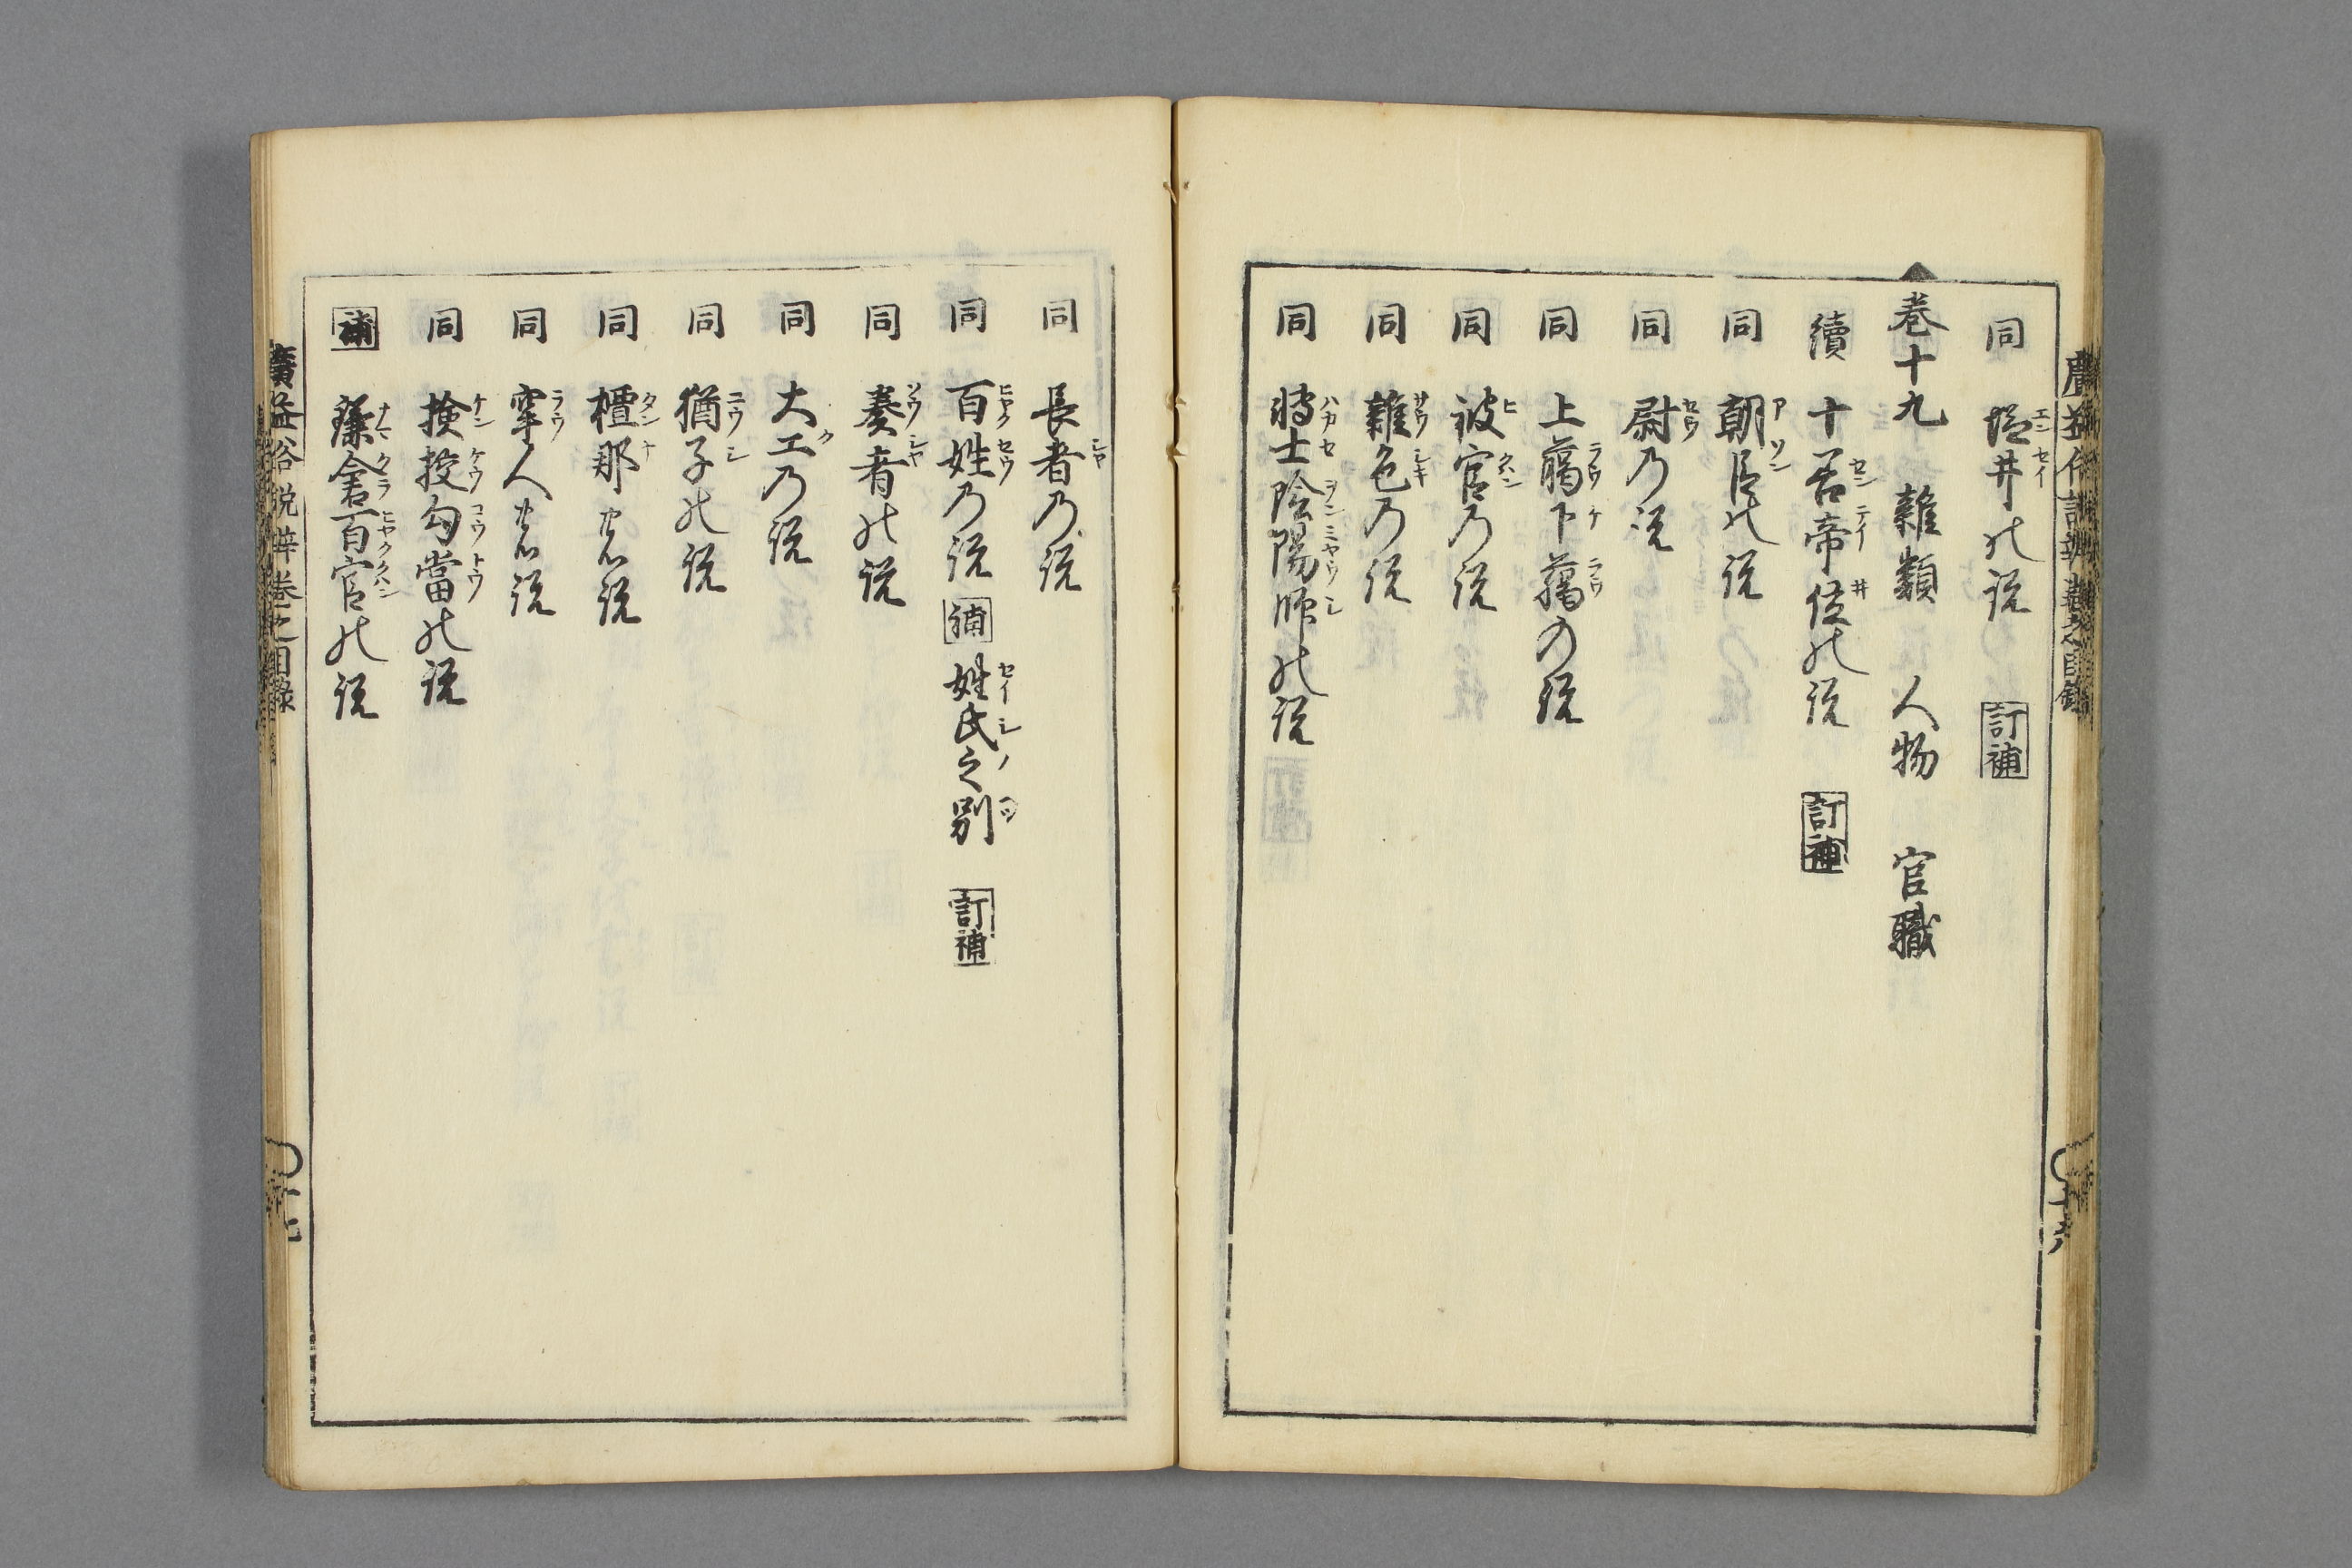 同 塩井の説 訂補
巻十九 雜類 人物 官職
續 十善帝位の説 訂補
同 朝臣の説
同 尉の説
同 上﨟下﨟の説
同 被官の説
同 雜色の説
同 博士陰陽師の説
同 長者の説
同 百姓の説 補 姓氏之別 訂補
同 奏者の説
同 大工の説
同 猶子の説
同 檀那の説
同 牢人の説
同 検校勾當の説
補 鎌倉百官の説
廣益俗説辨巻之目録
十七